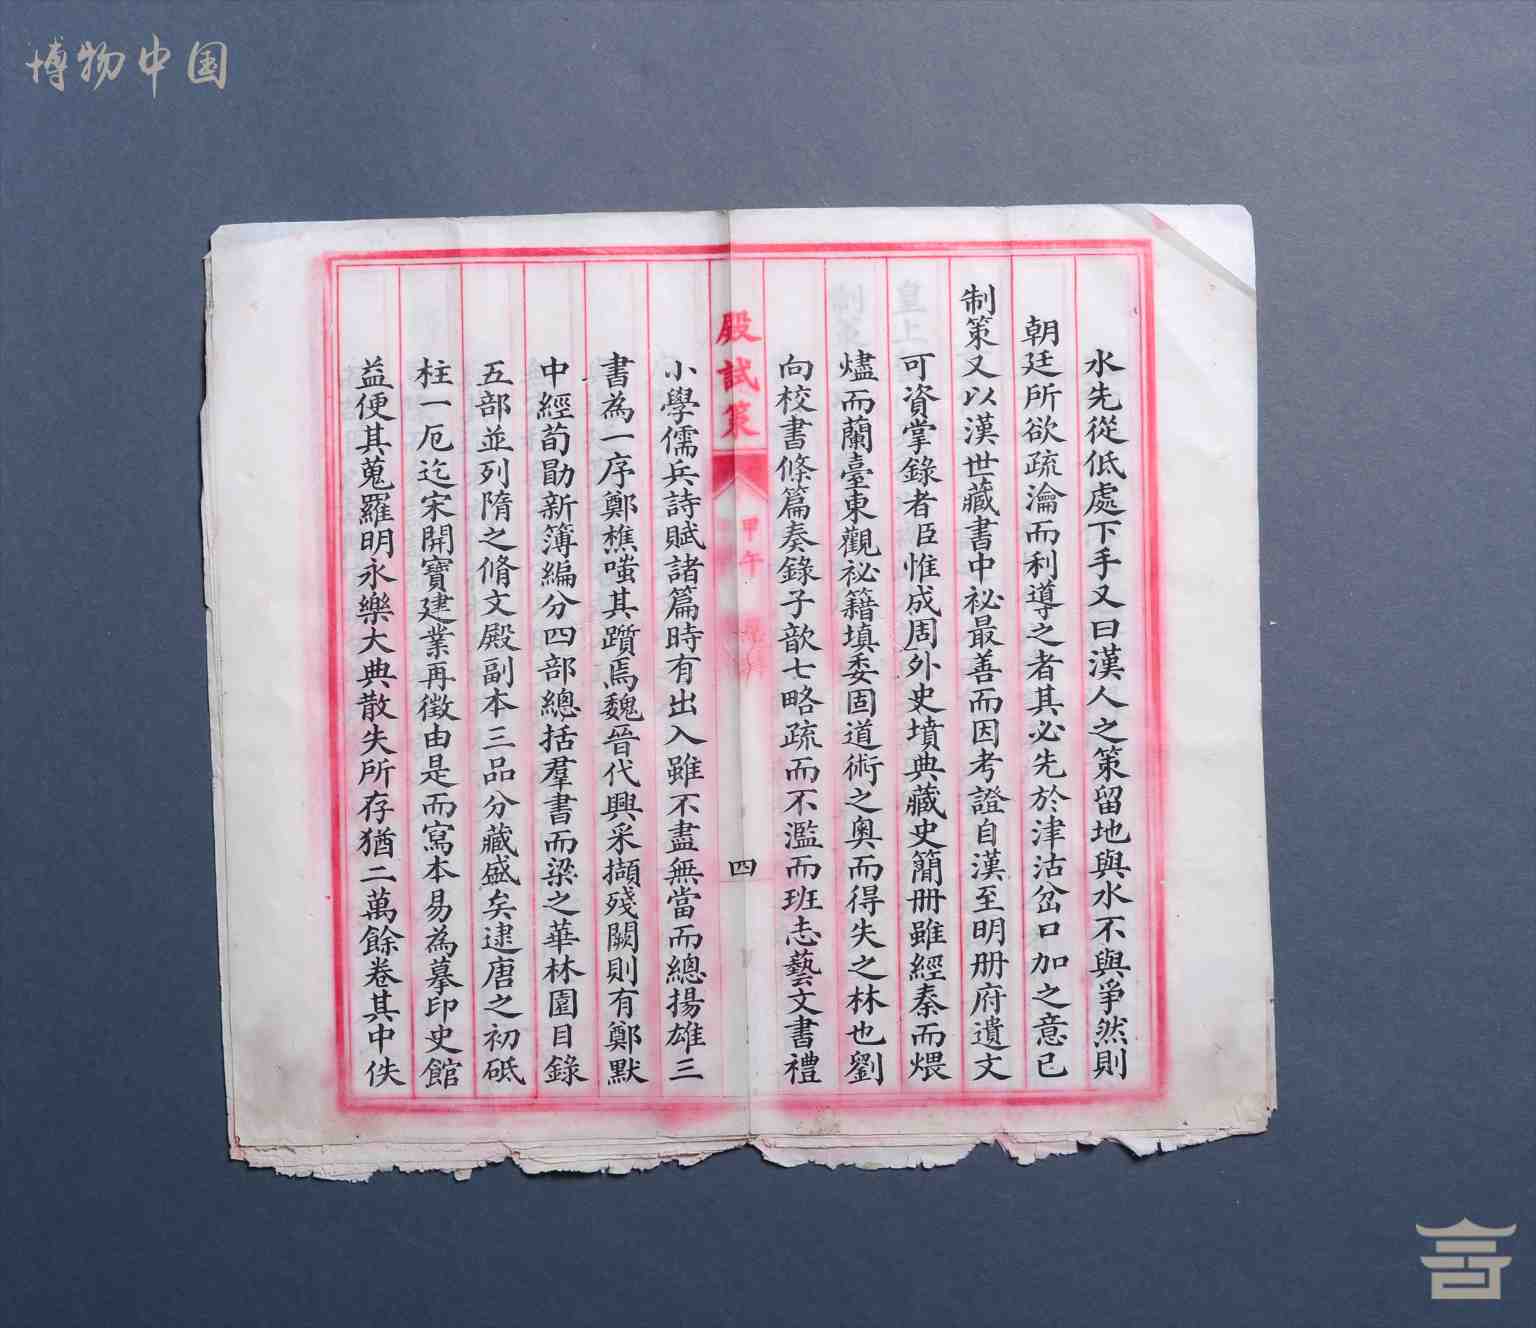 博物中国
水先從低處下手又曰漢人之策留地與水不與爭然則
朝廷所欲疏瀹而利導之者其必先於津沽岔口加之意已
制策又以漢世藏書中祕最善而因考證自漢至明冊府遺文
可資掌錄者臣惟成周外史墳典藏史簡冊雖經秦而煨
燼而蘭臺東觀祕籍填委固道術之奧而得失之林也劉
向校書條篇奏錄子歆七略疏而不濫而班志藝文書禮
殿試策
甲午
四
小學儒兵詩賦諸篇時有出入雖不盡無當而總揚雄三
書為一序鄭樵嗤其躓焉魏晉代興采擷殘闕則有鄭默
中經荀勖新簿編分四部總括羣書而梁之華林園目錄
五部並列隋之脩文殿副本三品分藏盛矣逮唐之初砥
柱一厄迄宋開寶建業再徵由是而寫本易為摹印史館
益便其蒐羅明永樂大典散失所存猶二萬餘卷其中佚